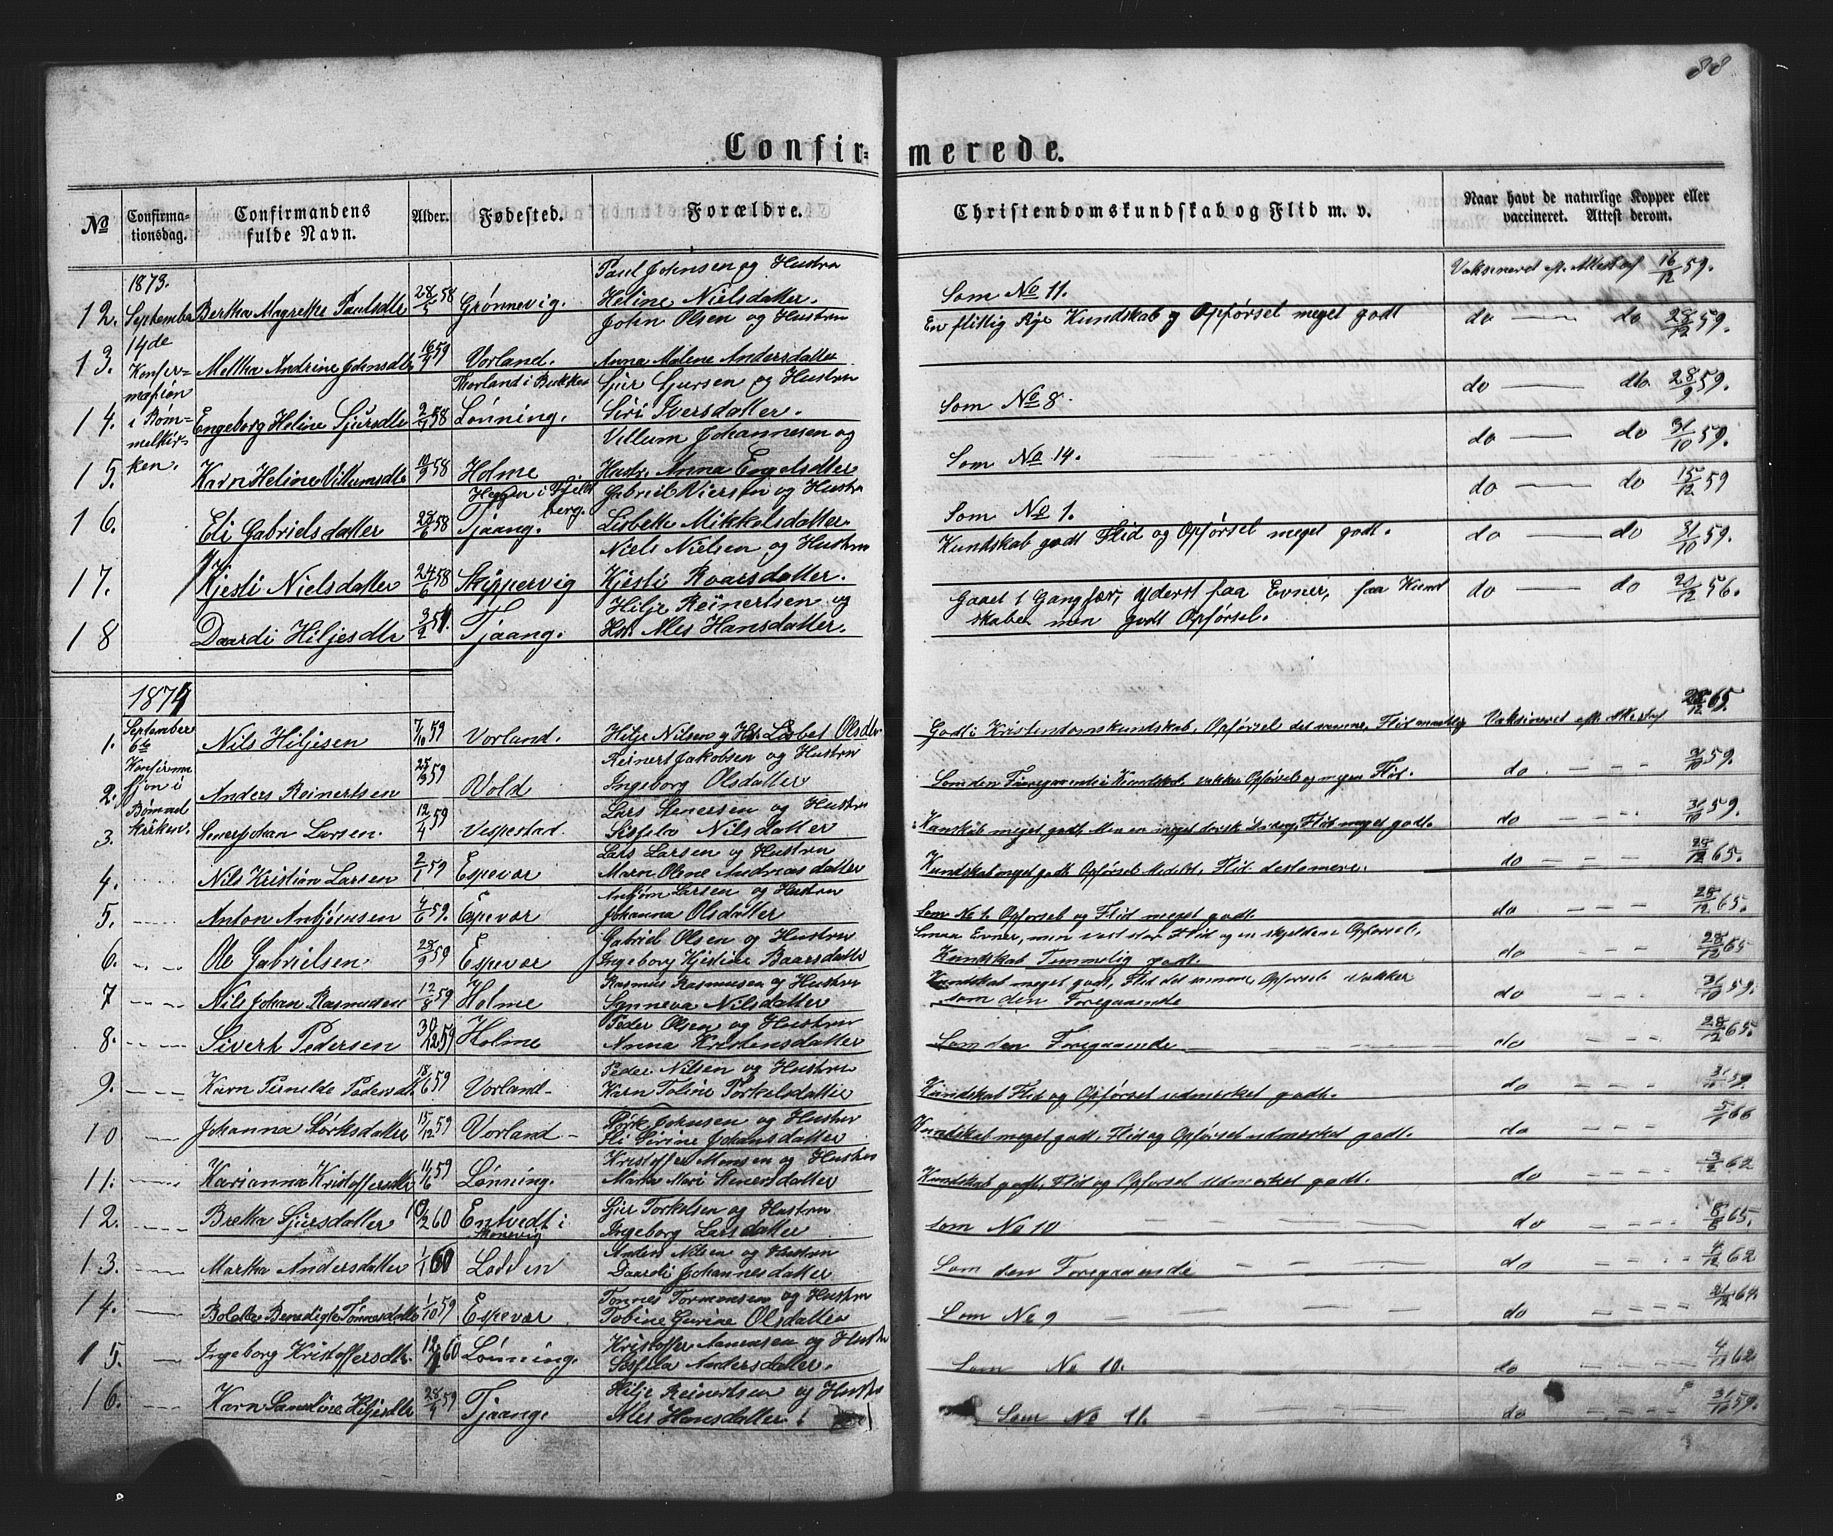 88
Confir- merede.
No
Confirma-tionsdag.
Confirmandens fulde Navn.
Alder.
Fødested.
Forældre.
Christendomskundskab og Flid m. v.
Naar havt de naturlige Kopper eller vaccineret. Attest derom.
1873. September 14de Konfirmation i Bømmelkirken.
12. Bertha Magrethe Paulsdtr 28/5 58 Grønnevig. Paul Johnsen og Hustru Heline Nielsdatter. Som No 11. Vaksineret eft. Attest af 16/12 59.
13. Meltha Andrine Johnsdtr 16/4 59 Vorland. John Olsen og Hustru Anna Malene Andersdatter En flittig Pige Kundskab og Opførsel meget godt do do 28/12 59.
14. Engeborg Heline Sjursdtr 58 Lønning. Sjur Sjursen og Hustru Siri Iversdatter. Som No 8. do do 28/9 59.
15. Karn Heline Villumsdtr 10/9 58 Holme Villum Johannesen og Hustr. Anna Engelsdtter Som No 14. do do 31/10 59.
16. Eli Gabrielsdatter 28/6 58 Tjaang. Gabriel Viersen og Hustru Lisbeth Mikkelsdatter. Som No 1. do do 15/12 59
17. Kjesti Nielsdatter 24/6 58 Skippervig Niels Nielsen og Hustru Kjesti Roarsdatter. Kundskab godt Flid og Opførsel meget godt. do do 31/10 59.
18 Daardi Hiljesdtr Tjaang. Hilje Reinertsen og Hst. Ales Hansdatter. Gaaet 1 Gang før, yderst faa Evner, faa Kundskaber men godt Opførsel. do do 20/12 56.
1874
September 6te Konfirmation i Bømmelkirken.
1. Nils Hiljesen 7/10 59 Vorland. Hilje Nilsen og Hst. Lisbet Olsdtr. Godt i Kristendomskundskab, Opførsel det samme, Flid Vaksineret eft. Attest af 28/12 65.
2. Anders Reinertsen 59 Vold Reinert Jakobsen og Hustru Ingeborg Olsdatter Som den Foregaaende i Kundskab vakker Opførsel og megen Flid. do 31/10 59.
3. Johan Larsen. 12/4 59 Vespestad. Lars Stenersen og Hustru Nilsdatter Kundskab meget godt, Flid meget godt. do 31/10 59.
4. Nils Kristian Larsen 2/1 59 Espevær Lars Larsen og Hustru Maren Olene Andreasdatter Kundskab meget godt Opførsel Flid desto mere. do 28/12 65.
5. Anton Anbjørnsen 4/6 59. Espevær Anbjørn Larsen og Hustru Johanna Olsdatter Som No 1. Opførsel og Flid meget godt. do 28/12 65.
6. Ole Gabrielsen 28/9 59 Espevær Gabriel Olsen og Hustru Ingeborg Kjestine Baarsdatter Smaa Evner, men stor Flid og en skjelden Opførsel, Kundskab Temmelig godt. do 28/12 65
7 Nils Johan Rasmusen 12/8 59 Holme Rasmus Rasmussen og Hustru Sanneva Nilsdatter Kundskab meget godt, Flid det samme, Opførsel vakker som den Foregaaende do 31/10 59.
8. Sivert Pedersen 30/12 59 Holme Peder Olsen og Hustru Anna Kristensdatter Som den Foregaaende do 28/12 65.
9. Karn Pernilde Pedersdtr 18/6 59 Vorland Peder Nilsen og Hustru Karn Toline Torkelsdatter Kundskab Flid og Opførsel udmerket godt. do 31/10 59.
10 Johanna Størksdatter 15/12 59 Vorland Størk Johnsen og Hustru Eli Sirine Johansdatter Kundskab meget godt, Flid og Opførsel udmerket godt. do 66
11. Karianna Kristoffersdtr 14/6 59 Lønning. Kristoffer Monsen og Hustru Marta Mari Stenersdatter Kundskab godt, Flid og Opførsel udmerket godt. do 62
12. Bretha Sjursdatter 60 Entvedt i Skonevig Sjur Torkelsen og Hustru Ingeborg Larsdatter som No 10 do 8/8 65.
13. Martha Andersdatter 1/1 60 Lodden Anders Nilsen og Hustru Daardi Johannesdatter Som den Foregaaende do 4/12 62
14. Bolette Benedigte Tønnesdtr 1/10 59 Espevær Tønnes Tormonsen og Hustru Tobine Gurine Olsdatter Som No 9 do
15. Ingeborg Kristoffersdtr. 60 Lønning. Kristoffer og Hustr Andersdatter. Som No 10. do 4/12 62
16. Karn Sandine Hiljesdtr 28/4 59 Tjaang. Hilje Reinertsen og Hustru Ales Hansdatter Som No 11. do 31/10 59.